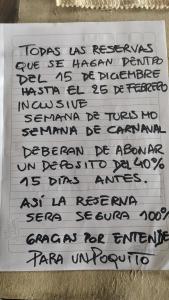 TODAS LAS RESERVAS
QUE SE HAGAN DENTRO
DEL 15 DE DICIEMBRE
HASTA EL 25 DE FEBRERO
INCLUSIVE
SEMANA DE TURISMO
SEMANA DE CARNAVAL
DEBERAN DE ABONAR
UN DEPOSITO DEL 40%
15 DÍAS ANTES.
ASÍ LA RESERVA
SERA SEGURA 100%
GRACIAS POR ENTENDE
PARA UN POQUITO